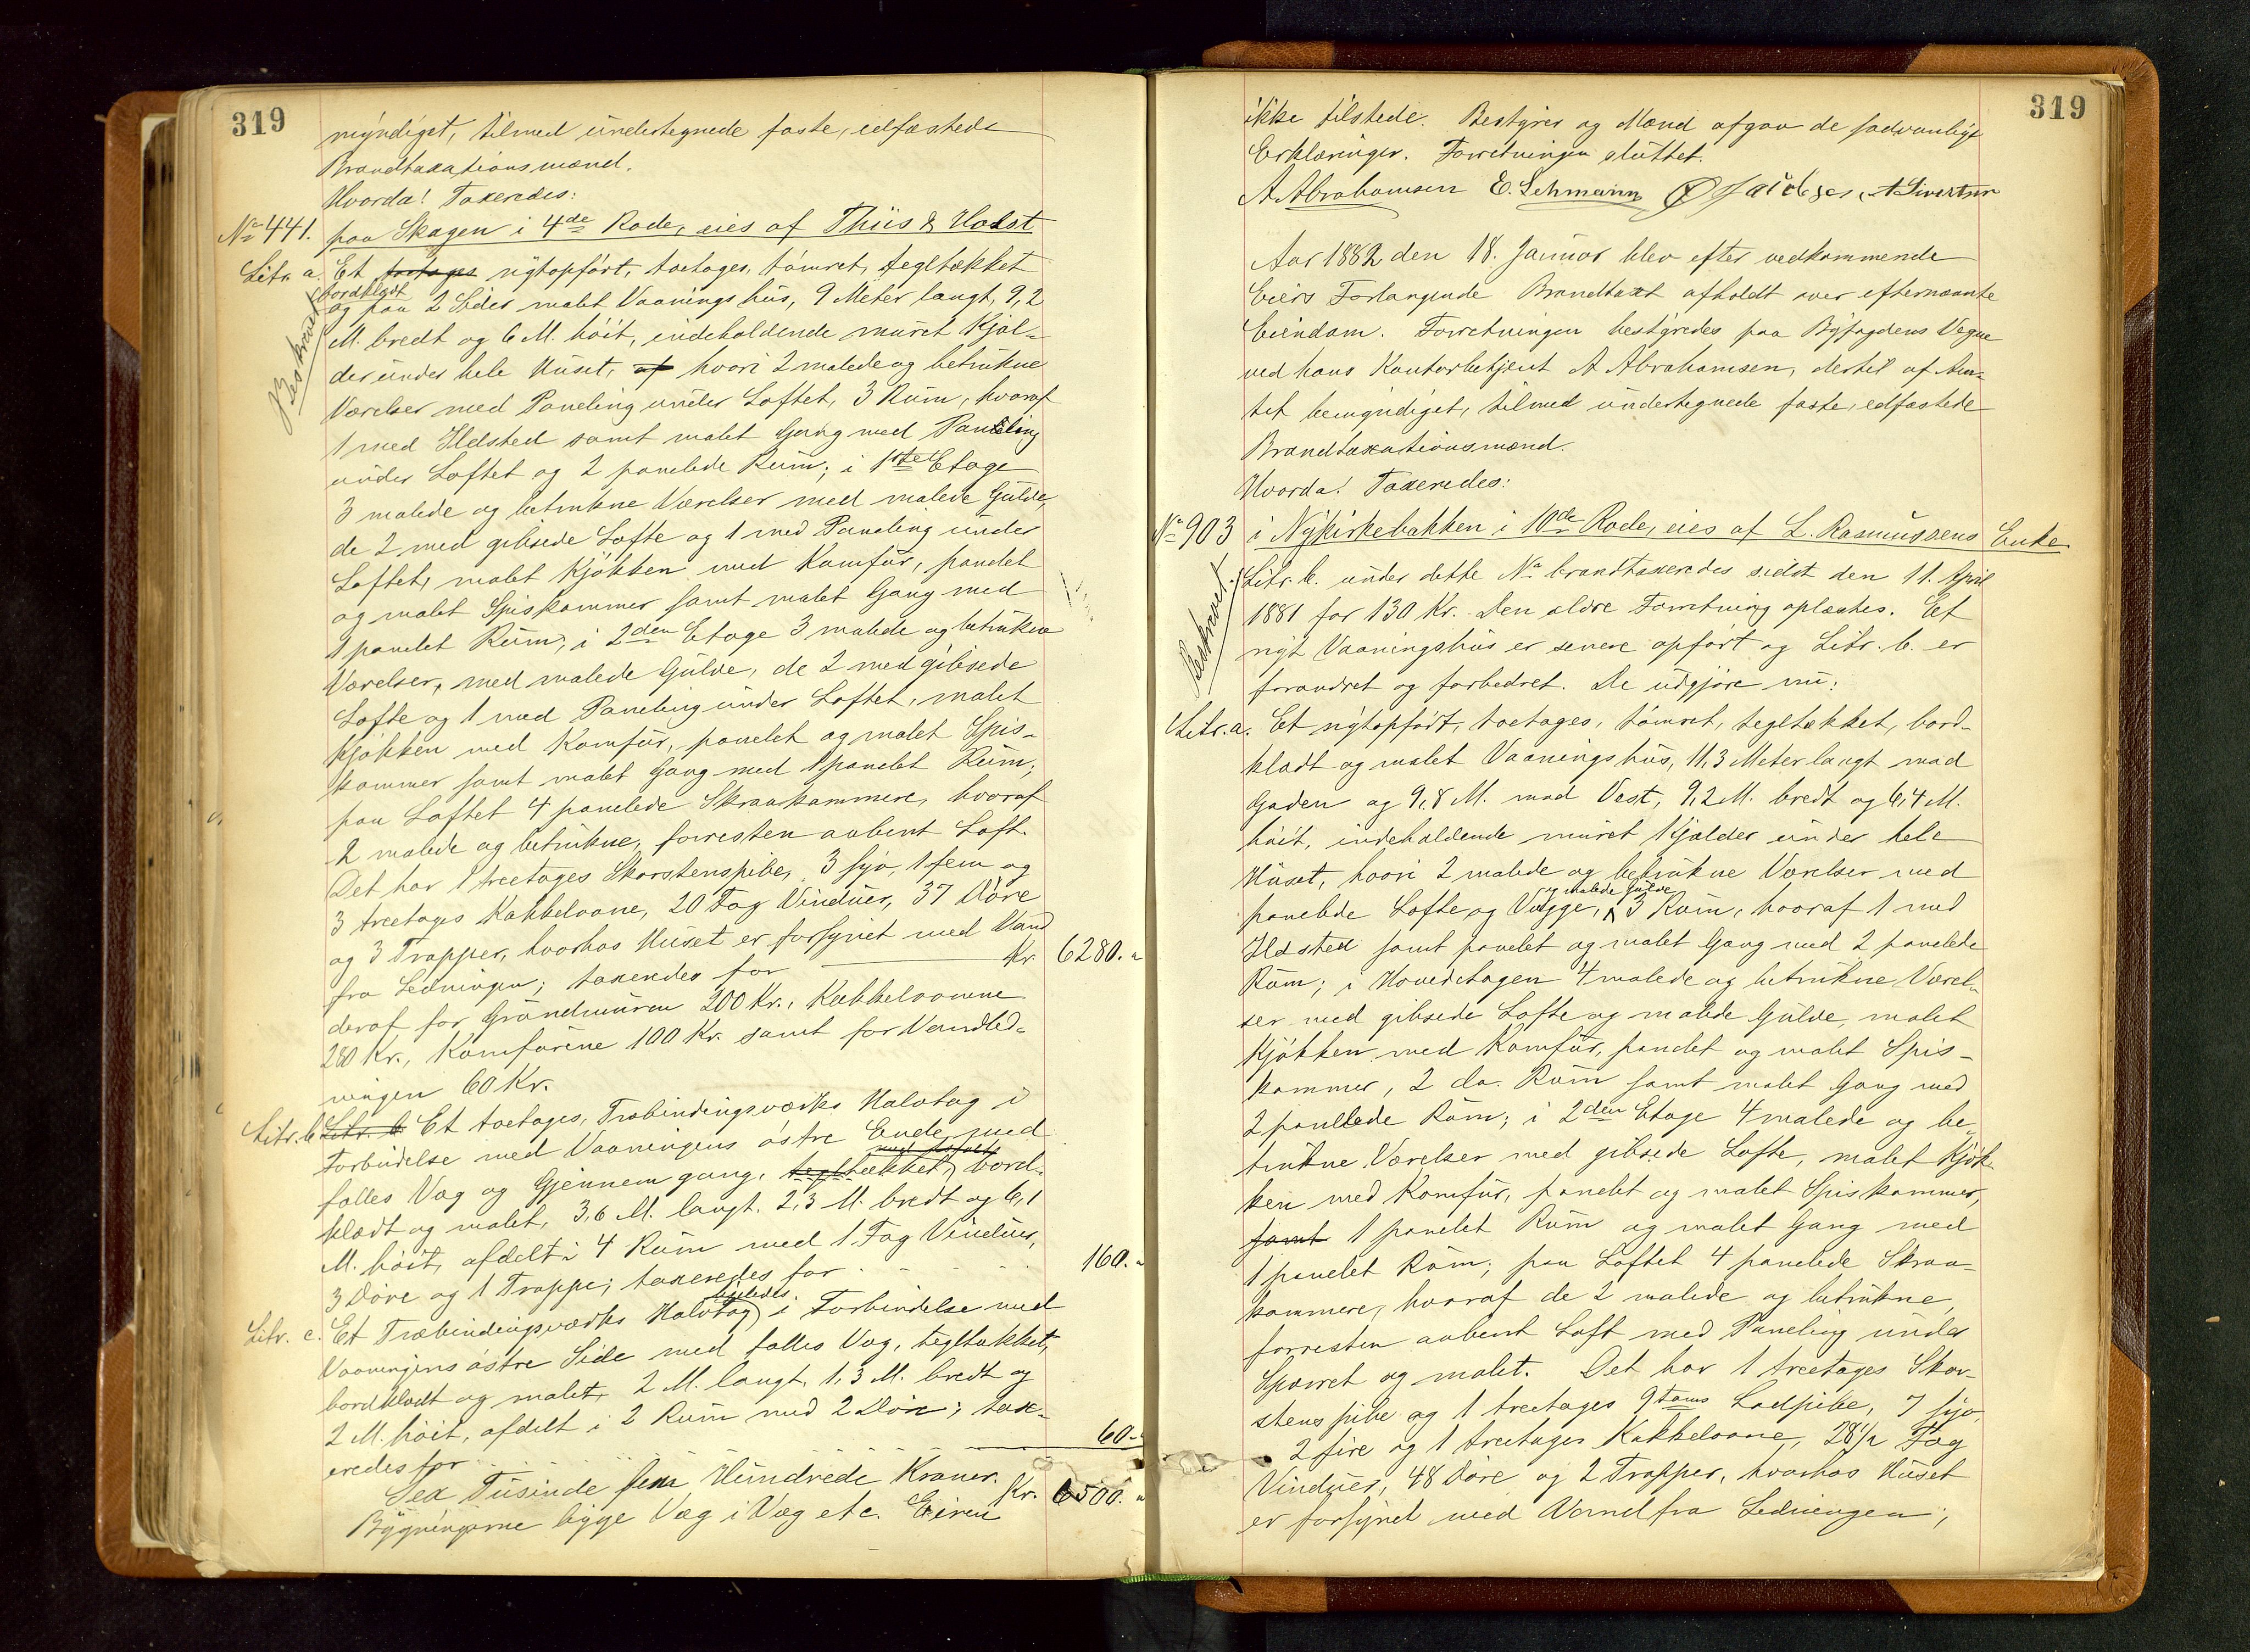 319
myndiget, tilmed undertegnede faste, edfæstede
Brandtaxationsmænd.
Hvorda! Taxeredes:
No 441. paa Skagen i 4de Rode, eies af Thiis & Holst
Litr. a. Et toetages nytopført, toetages, tømret, tegltækket
bordklædt
og paa 2 Sider malet Vaaningshus, 9 Meter langt, 9,2
Beskrevet
M. bredt og 6 M. høit, indeholdende muret Kjæl-
der under hele Huset, af hvori 2 malede og betrukne
Værelser med Paneling under Loftet, 3 Rum, hvoraf
1 med Ildsted samt malet Gang med Paneling
under Loftet og 2 panelede Rum; i 1ste Etage
3 malede og betrukne Værelser med malede Gulve,
de 2 med gibsede Lofte og 1 med Paneling under
Loftet, malet Kjøkken med Komfur, panelet
og malet Spiskammer samt malet Gang med
1 panelet Rum; i 2den Etage 3 malede og betrukne
Værelser, med malede Gulve, de 2 med gibsede
Lofte og 1 med Paneling under Loftet, malet
Kjøkken med Komfur, panelet og malet Spis-
kammer samt malet Gang med 1 panelet Rum;
paa Loftet 4 panelede Skraakammere, hvoraf
2 malede og betrukne, forresten aabent Loft.
Det har 1 treetages Skorstenspibe, 3 syv, 1 fem og
3 treetages Kakkelovne, 20 Fag Vinduer, 37 Døre
og 3 Trapper, hvorhos Huset er forsynet med Vand
fra Ledningen; taxeredes for Kr. 6280. "
deraf for Grundmuren 200 Kr., Kakkelovnene
280 Kr., Komfurene 100 Kr. samt for Vandled-
ningen 60 Kr.
Litr. b Litr. b Et toetages, Træbindingsværks Halvtag i
Forbindelse med Vaaningens østre Ende med
med Asfalt
fælles Væg og Gjennemgang, tegltækket, bord-
klædt og malet, 3,6 M. langt, 2,3 M. bredt og 6,1
M. høit, afdelt i 4 Rum med 1 Fag Vinduer,
3 Døre og 1 Trappe; taxeredes for 160. "
Litr. c. Et Træbindingsværks Halvtag i Forbindelse med
Vaaningens østre Side med fælles Væg, tegltækket,
bordklædt og malet, 2 M. langt, 1,3 M. bredt og
2 M. høit, afdelt i 2 Rum med 2 Døre; tax-
eredes for 60. "
Sex Tusinde fem Hundrede Kroner. Kr. 6500. "
Bygningerne ligge Væg i Væg etc. Eieren
319
ikke tilstede. Bestyrer og Mænd afgav de sædvanlige
Erklæringer. Forretningen sluttet.
A Abrahamsen E. Lehmann A Sivertsen
Aar 1882 den 18. Januar blev efter vedkommende
Eiers Forlangende Brandtaxt afholdt over efternævnte
Eiendom. Forretningen bestyredes paa Byfogdens Vegne
ved hans Kontorbetjent A Abrahamsen, dertil af Am-
tet bemyndiget, tilmed undertegnede faste, edfæstede
Brandtaxationsmænd.
Hvorda! Taxeredes:
No 903 i Nykirkebakken i 10de Rode, eies af L. Rasmussens Enke
Beskrevet.
Litr. b. under dette No brandtaxeredes sidst den 11. April
1881 for 130 Kr. Den ældre Forretning oplæstes. Et
nyt Vaaningshus er senere opført og Litr. b. er
forandret og forbedret. De udgjøre nu:
Litr. a. Et nytopført, toetages, tømret, tegltækket, bord-
klædt og malet Vaaningshus, 11,3 Meter langt mod
Gaden og 9,8 M. mod Vest, 9,2 M. bredt og 6,4 M.
høit, indeholdende muret Kjælder under hele
Huset, hvori 2 malede og betrukne Værelser med
og malede Gulve
panelede Lofte og Vægge, 3 Rum, hvoraf 1 med
Ildsted samt panelet og malet Gang med 2 panelede
Rum; i Hovedetagen 4 malede og betrukne Værel-
ser med gibsede Lofte og malede Gulve, malet
Kjøkken med Komfur, panelet og malet Spis-
kammer, 2 do. Rum samt malet Gang med
2 panelede Rum; i 2den Etage 4 malede og be-
trukne Værelser med gibsede Lofte, malet Kjøk-
ken med Komfur, panelet og malet Spiskammer,
samt 1 panelet Rum og malet Gang med
1 panelet Rum; paa Loftet 4 panelede Skraa-
kammere, hvoraf de 2 malede og betrukne,
forresten aabent Loft med Paneling under
Sparret og malet. Det har 1 treetages Skor-
stenspibe og 1 treetages 9toms Lodpibe, 7 syv,
2 fire og 1 treetages Kakkelovne, 28 1/2 Fag
Vinduer, 48 Døre og 2 Trapper, hvorhos Huset
er forsynet med Vand fra Ledningen;